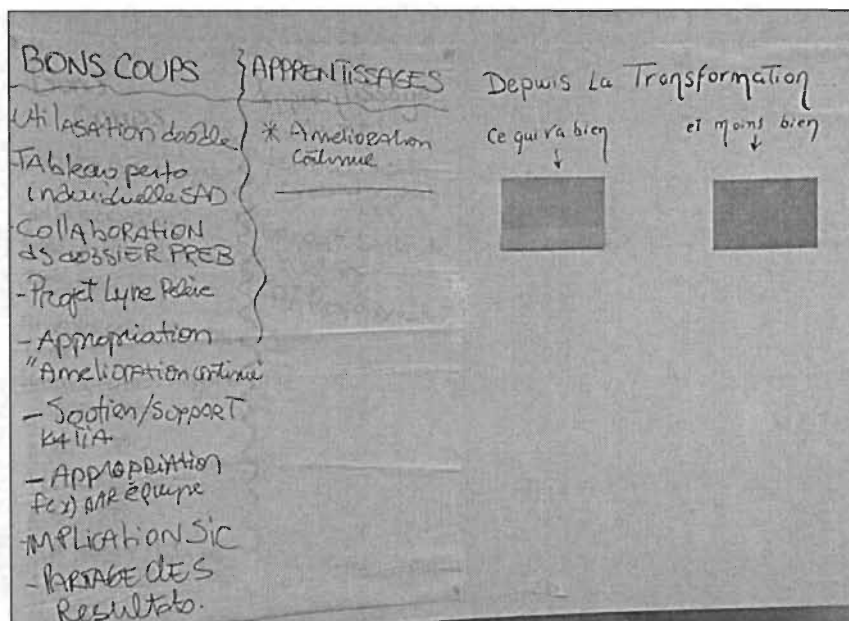 BONS COUPS
Utilasation doodle
TAbleau perfo
individuelle SAD
- COllAbORATION
ds dOSSIER PREB
- Projet Lyne
- Appropriation
"Amelioration continue"
- Soutien/SUPPORT
- APPROPRIATION
f(x) équipe
IMPLICATION SIC
- PARTAGE dES
Resultats.
APPRENTISSAGES
* Amelioration
continue
Depuis La Transformation
Ce qui va bien
et moins bien